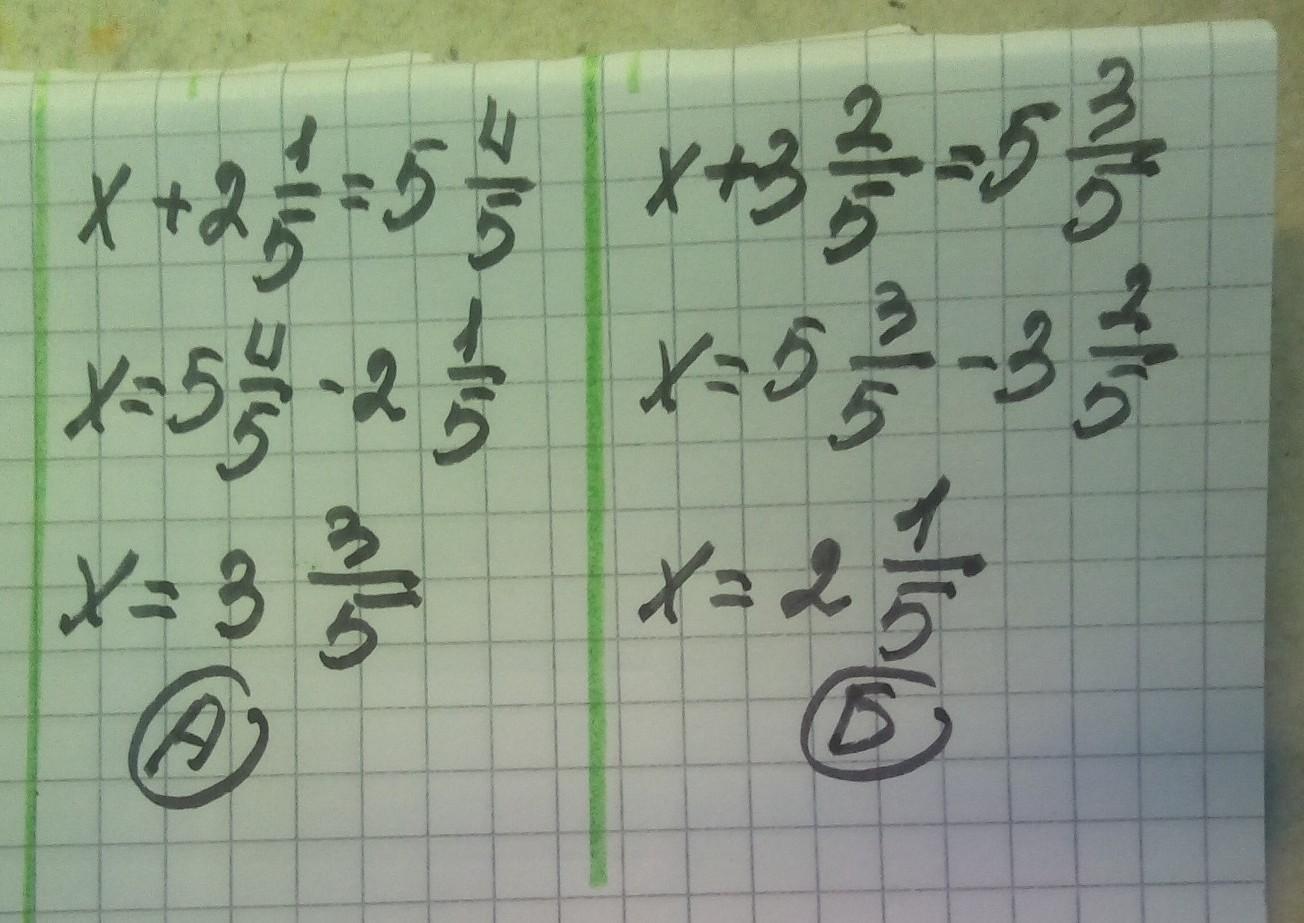 x + 2 1/5 = 5 4/5
x = 5 4/5 - 2 1/5
x = 3 3/5
А
x + 3 2/5 = 5 3/5
x = 5 3/5 - 3 2/5
x = 2 1/5
Б